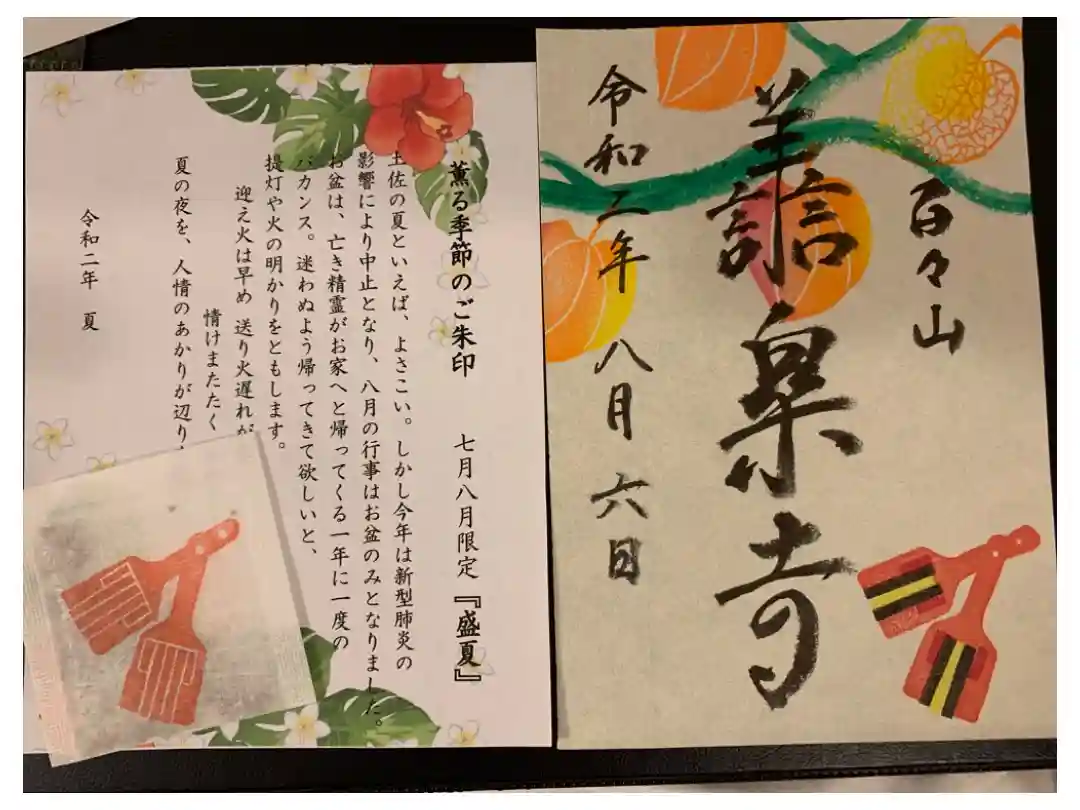 百々山
譱楽寺
令和二年 八月 六日
薫る季節のご朱印 七月八月限定『盛夏』
土佐の夏といえば、よさこい。しかし今年は新型肺炎の
影響により中止となり、八月の行事はお盆のみとなりました。
お盆は、亡き精霊がお家へと帰ってくる一年に一度の
バカンス。迷わぬよう帰ってきて欲しいと、
提灯や火の明かりをともします。
迎え火は早め 送り火遅れが
情けまたたく
夏の夜を、人情のあかりが辺り
令和二年 夏